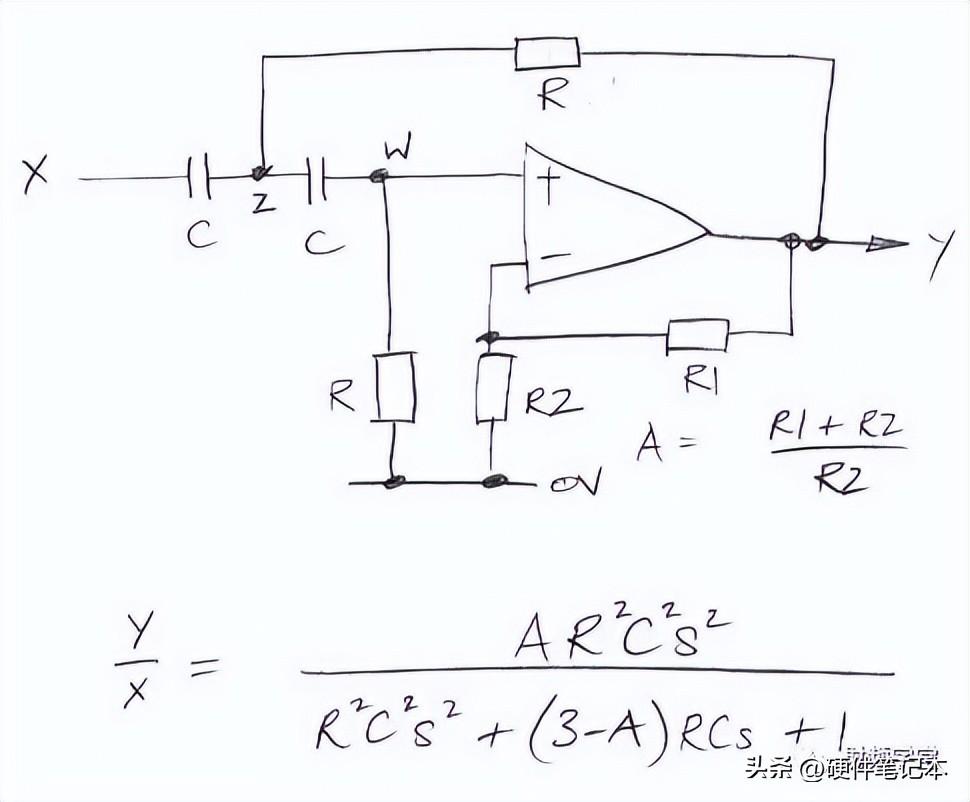 R
X
W
Z
C
C
+
−
Y
R
R2
R1
0V
A = (R1 + R2) / R2
Y/X = AR²C²s² / (R²C²s² + (3−A)RCs + 1)
头条 @硬件笔记本